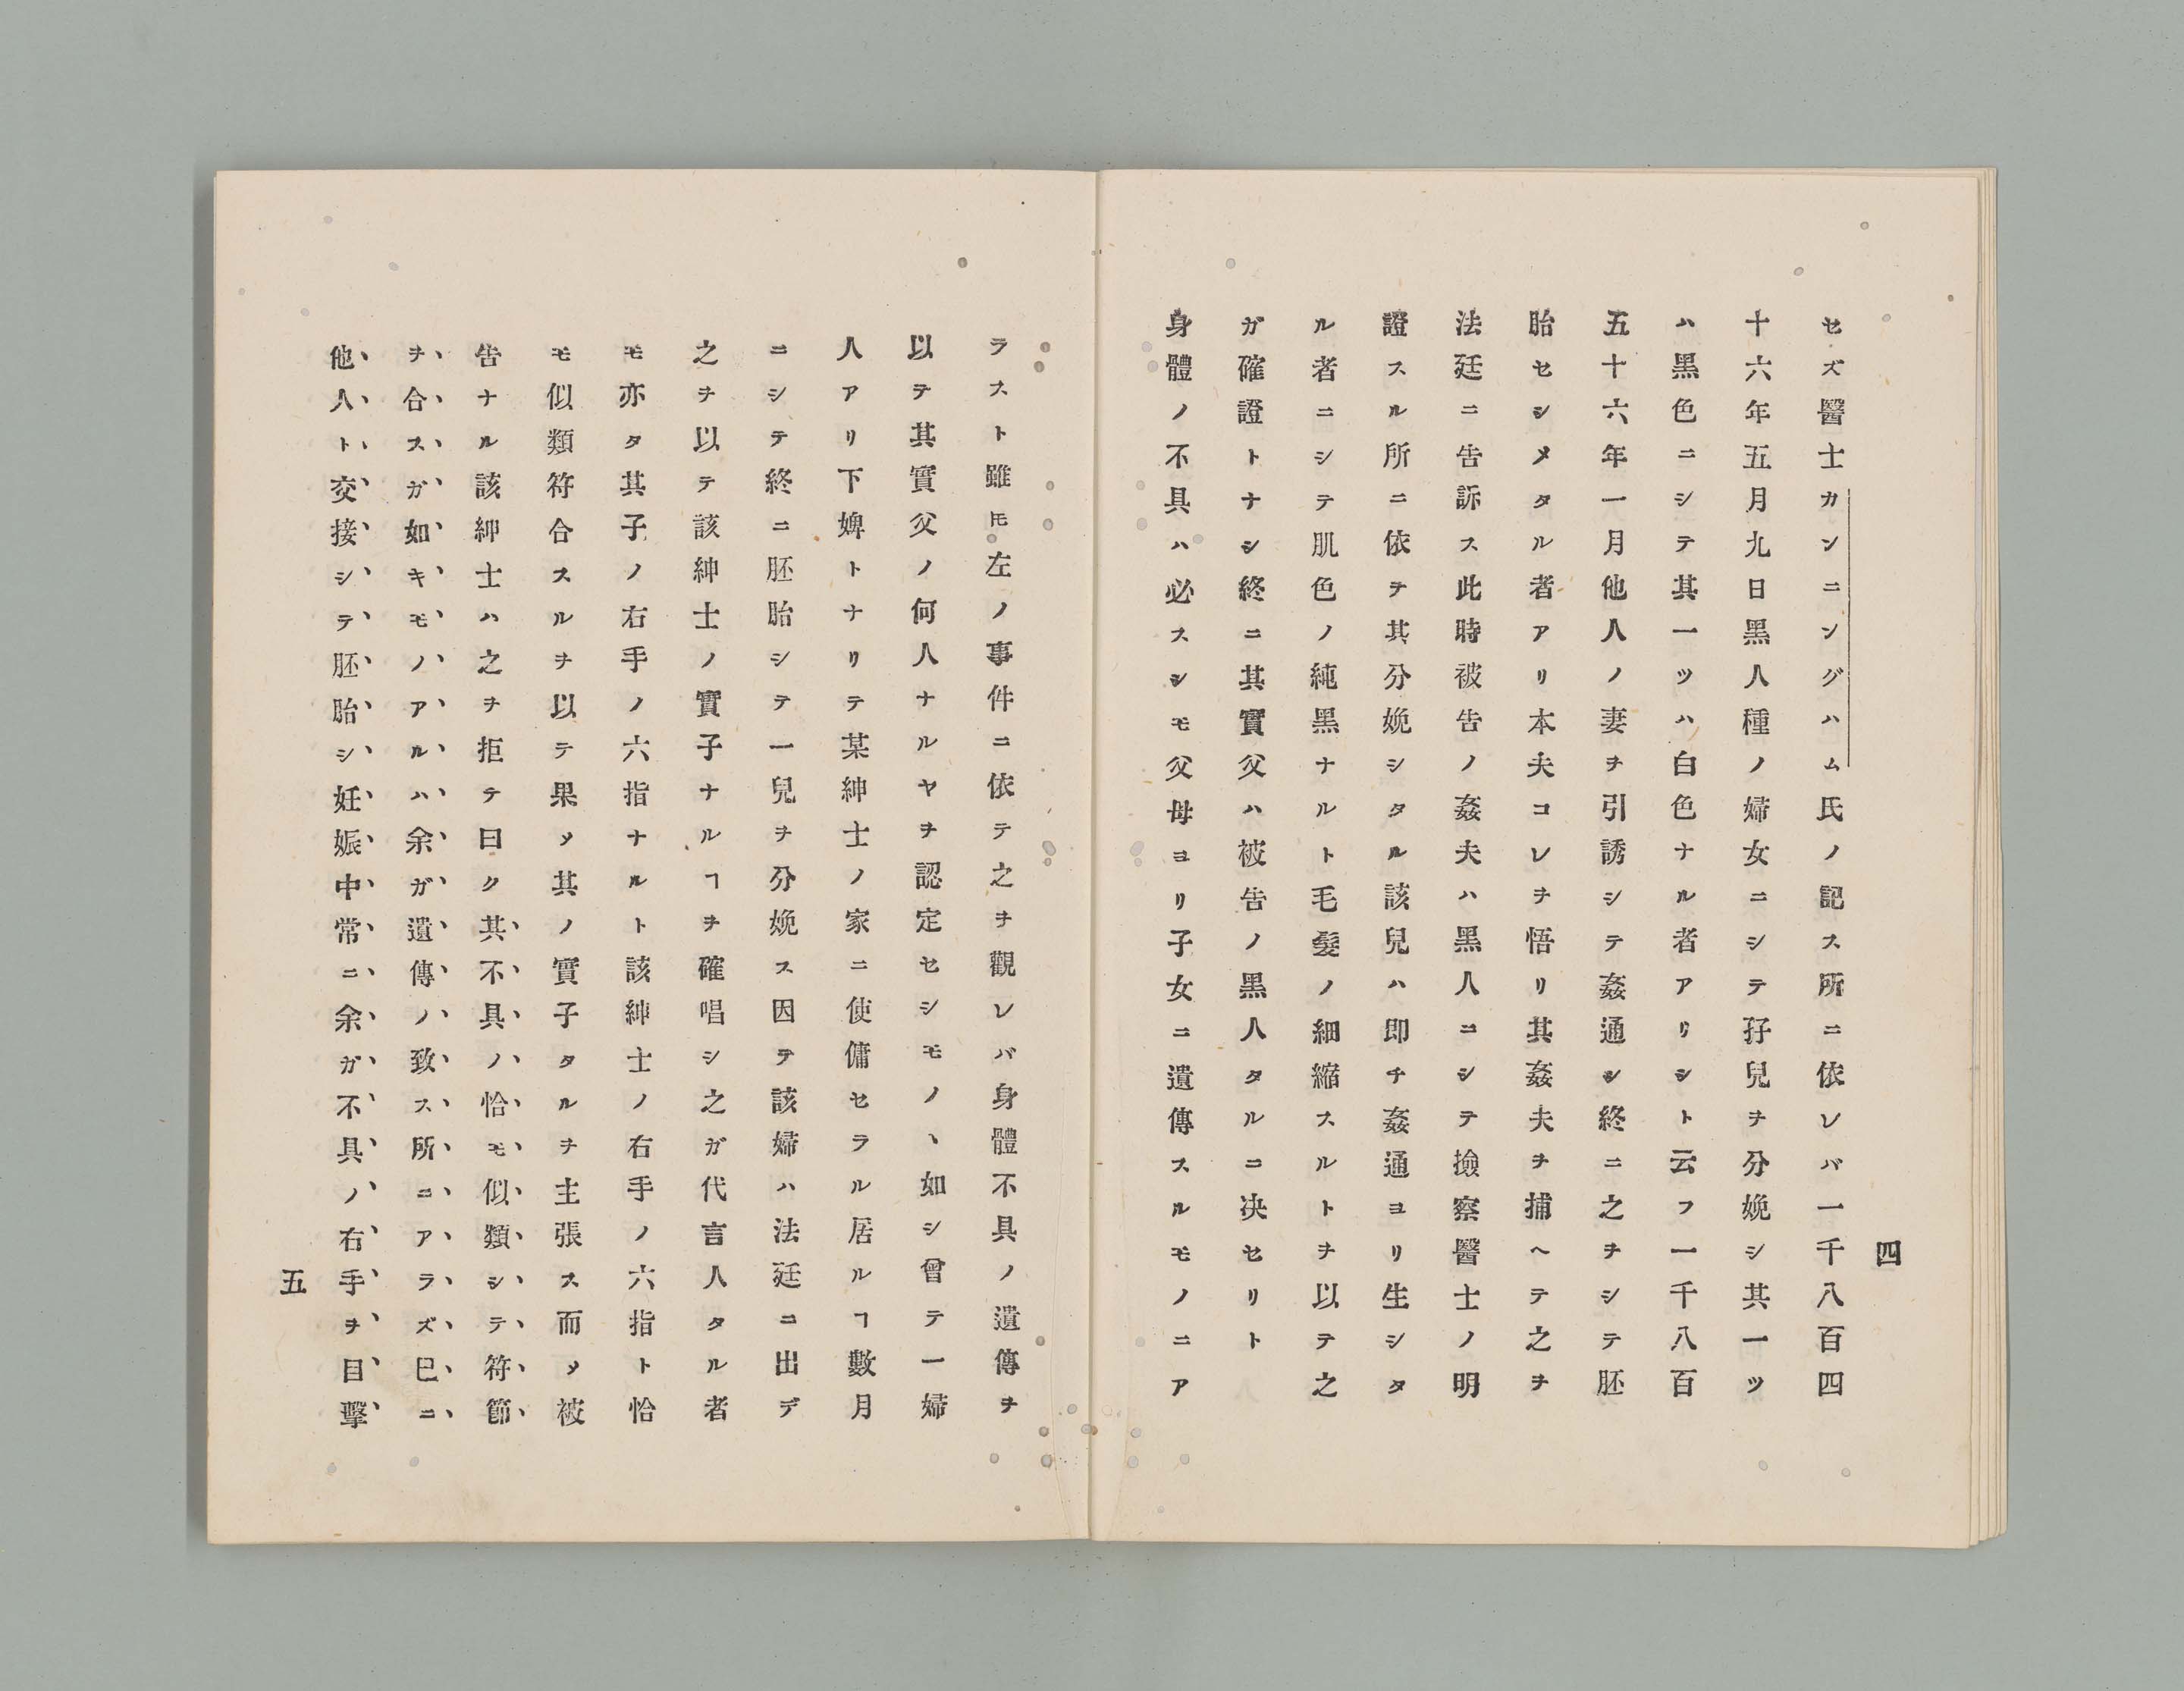 四
セズ醫士カンニングハム氏ノ記ス所ニ依レバ一千八百四
十六年五月九日黑人種ノ婦女ニシテ孖兒ヲ分娩シ其一ツ
ハ黑色ニシテ其一ツハ白色ナル者アリシト云フ一千八百
五十六年一月他人ノ妻ヲ引誘シテ姦通シ終ニ之ヲシテ胚
胎セシメタル者アリ本夫コレヲ悟リ其姦夫ヲ捕ヘテ之ヲ
法廷ニ告訴ス此時被告ノ姦夫ハ黑人コシテ撿察醫士ノ明
證スル所ニ依テ其分娩シタル該兒ハ即チ姦通ヨリ生シタ
ル者ニシテ肌色ノ純黑ナルト毛髮ノ細縮スルトヲ以テ之
ガ確證トナシ終ニ其實父ハ被告ノ黑人タルニ决セリト
身體ノ不具ハ必スシモ父母ヨリ子女ニ遺傳スルモノニア
ラスト雖𪜈左ノ事件ニ依テ之ヲ觀レバ身體不具ノ遺傳ヲ
以テ其實父ノ何人ナルヤヲ認定セシモノヽ如シ曾テ一婦
人アリ下婢トナリテ某紳士ノ家ニ使傭セラル居ルヿ數月
ニシテ終ニ胚胎シテ一兒ヲ分娩ス因テ該婦ハ法廷ニ出デ
之ヲ以テ該紳士ノ實子ナルヿヲ確唱シ之ガ代言人タル者
モ亦タ其子ノ右手ノ六指ナルト該紳士ノ右手ノ六指ト恰
モ似類符合スルヲ以テ果〆其ノ實子タルヲ主張ス而〆被
告ナル該紳士ハ之ヲ拒テ曰ク其不具ノ恰モ似類シテ符節
ヲ合スガ如キモノアルハ余ガ遺傳ノ致ス所ニアラズ巳ニ
他人ト交接シテ胚胎シ妊娠中常ニ余ガ不具ノ右手ヲ目擊
五